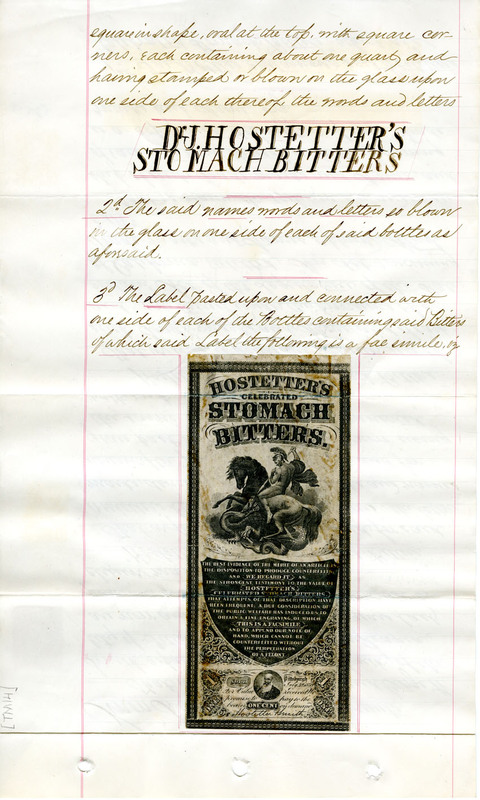 square in shape, oval at the top, with square cor-
ners, each containing about one quart, and
having stamped or blown on the glass upon
one side of each thereof the words and letters
DR. J. HOSTETTER'S
STOMACH BITTERS
2d. The said names words and letters so blown
in the glass on one side of each of said bottles as
aforesaid.
3d The Label pasted upon and connected with
one side of each of the Bottles containing said Bitters
of which said Label the following is a fac simile, viz
HOSTETTER'S
CELEBRATED
STOMACH
BITTERS.
THE BEST EVIDENCE OF THE MERIT OF AN ARTICLE IS
THE DISPOSITION TO PRODUCE COUNTERFEITS
AND WE REGARD IT AS
THE STRONGEST TESTIMONY TO THE VALUE OF
HOSTETTER'S
CELEBRATED STOMACH BITTERS
THAT ATTEMPTS OF THAT DESCRIPTION HAVE
BEEN FREQUENT. A DUE CONSIDERATION OF
THE PUBLIC WELFARE HAS INDUCED US TO
OBTAIN A FINE ENGRAVING, OF WHICH
THIS IS A FACSIMILE
AND TO APPEND OUR NOTE OF
HAND, WHICH CANNOT BE
COUNTERFEITED WITHOUT
THE PERPETRATION
OF A FELONY
ONE CENT
Hostetter & Smith
[HMLT]